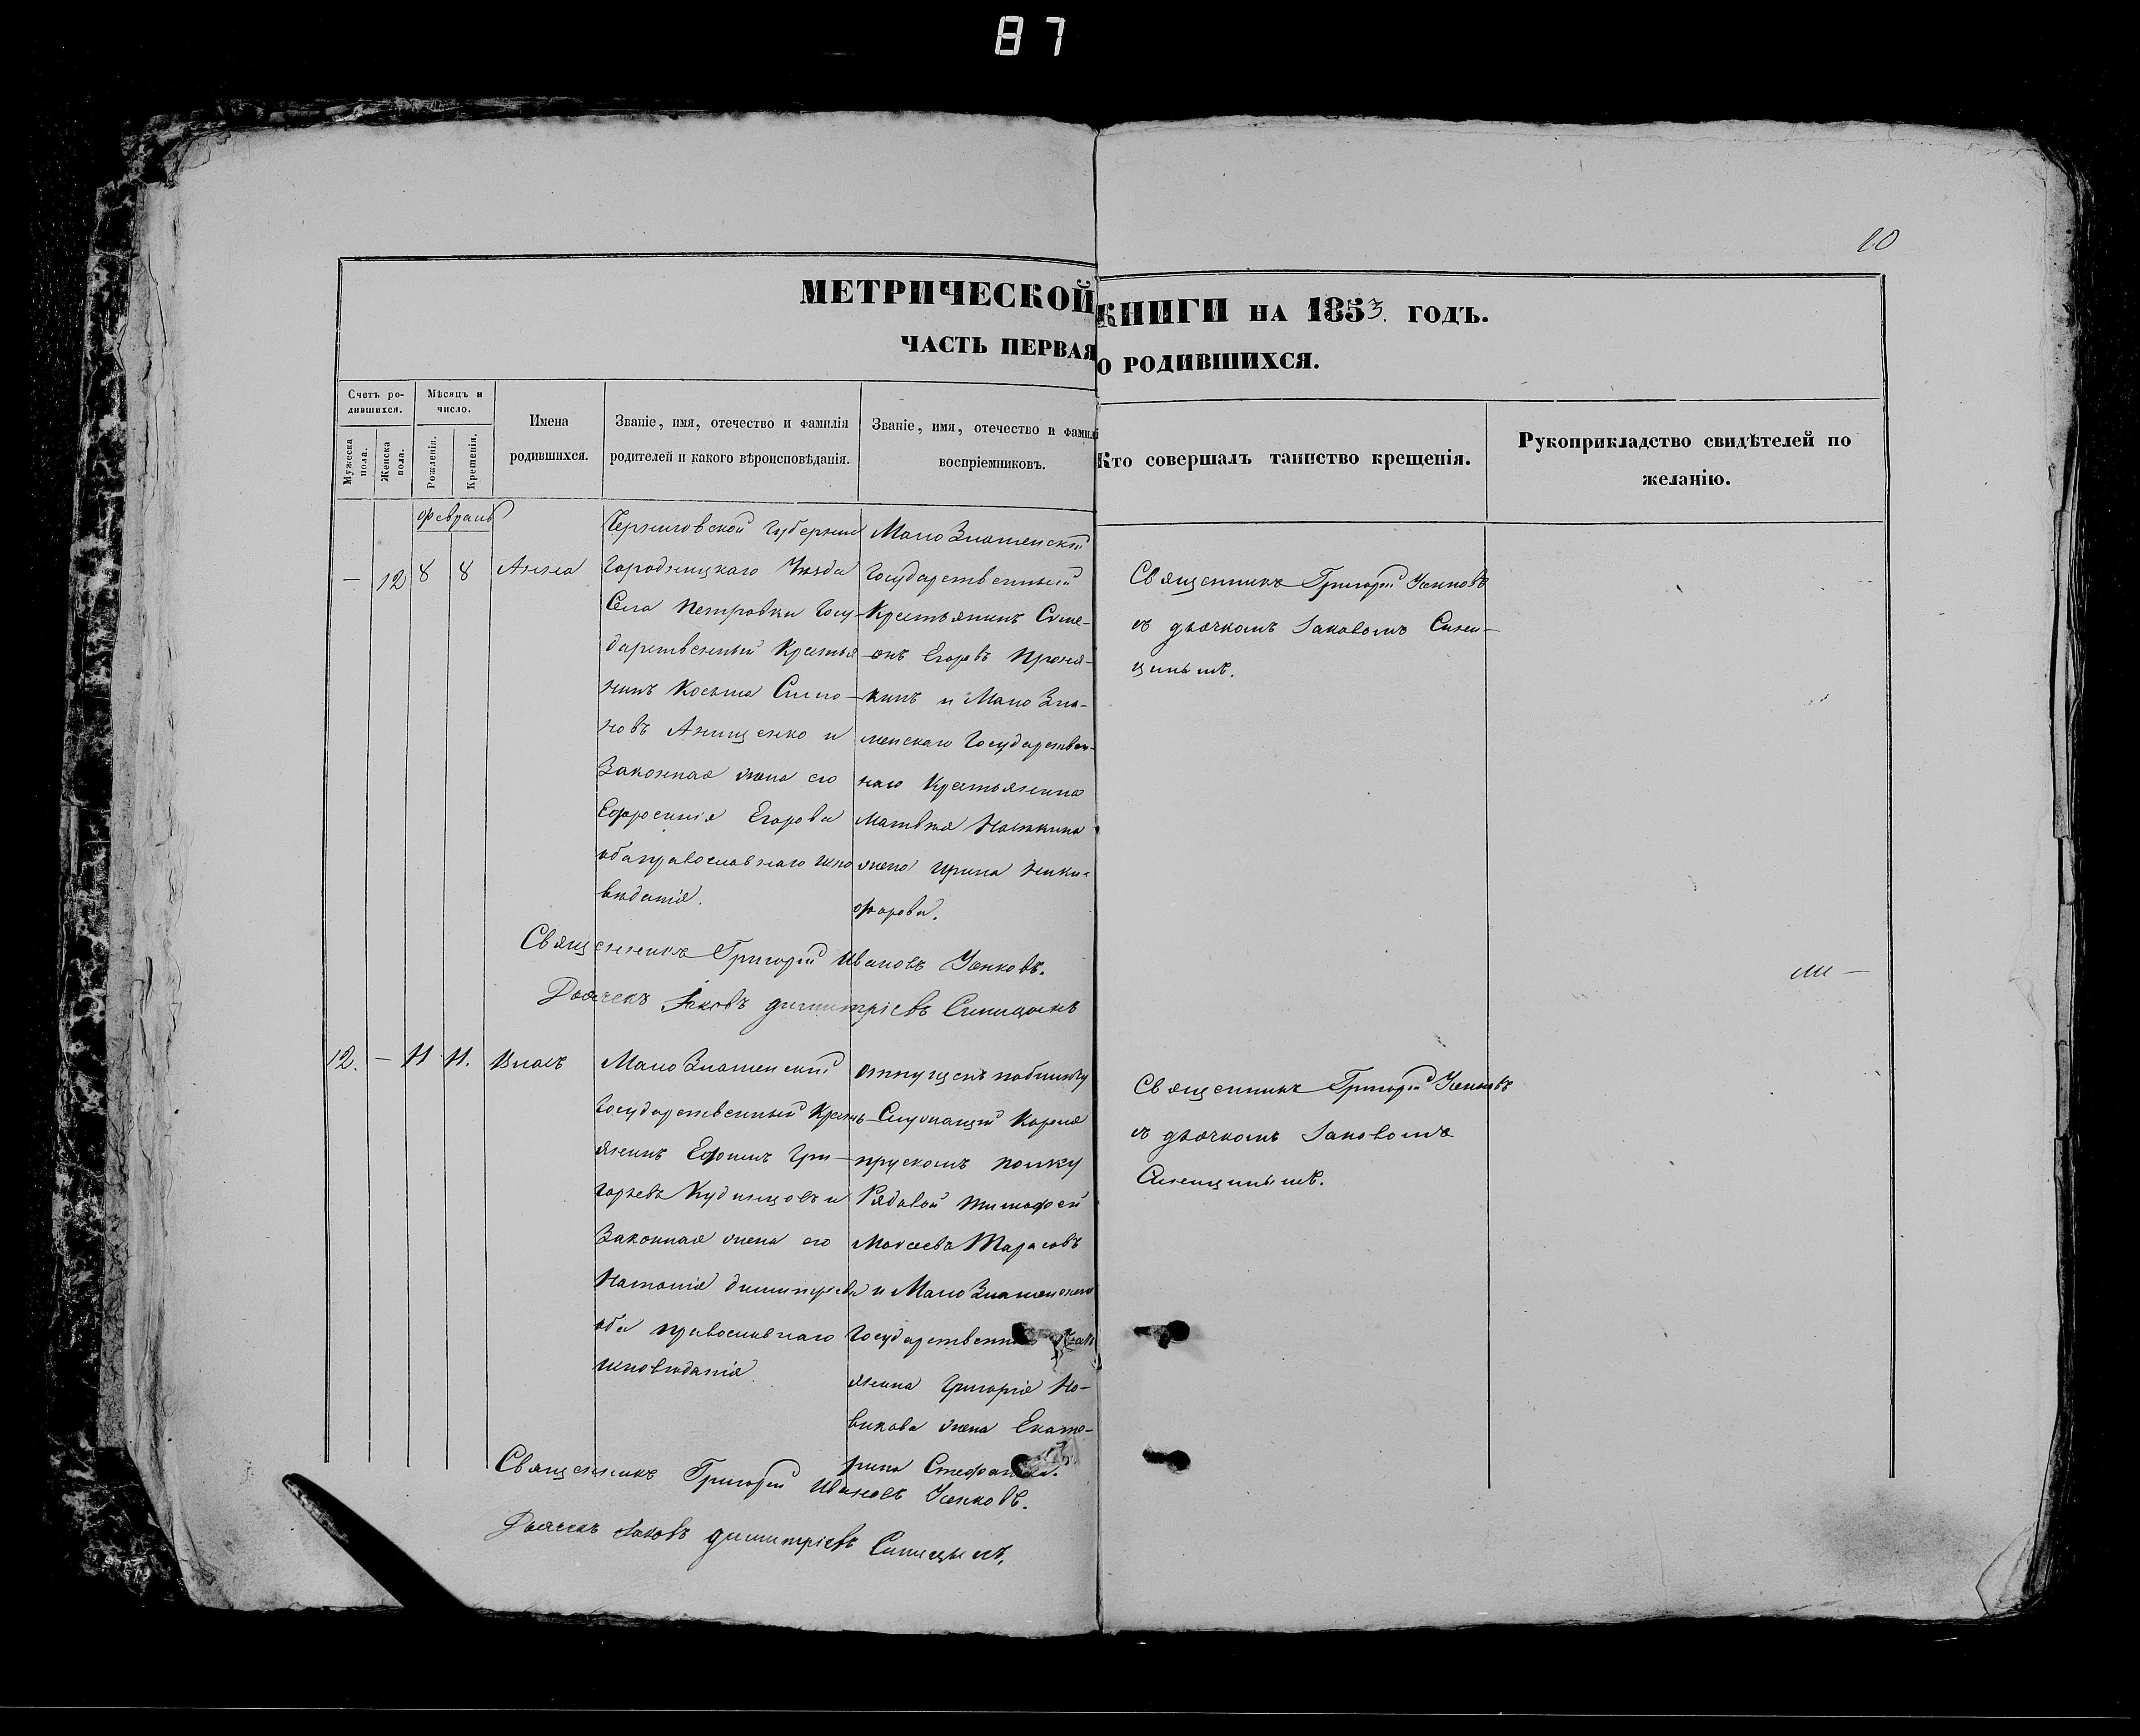 87
10
МЕТРИЧЕСКОЙ КНИГИ НА 1853. ГОДЪ.
ЧАСТЬ ПЕРВАЯ О РОДИВШИХСЯ.
Счетъ ро-
дившихся.
Мужеска
пола.
Женска
пола.
Мѣсяцъ и
число.
Рожденія.
Крещенія.
Имена
родившихся.
Званіе, имя, отечество и фамилія
родителей и какого вѣроисповѣданія.
Званіе, имя, отечество и фамилі
воспріемниковъ.
Кто совершалъ таинство крещенія.
Рукоприкладство свидѣтелей по
желанію.
Февраль
— 12 8 8 Анна
Черниговской Губерніи
Городницкаго Уѣзда
Села Петровки Госу-
дарственный Крестья
нинъ Косьма Симо-
новъ Анищенко и
Законная жена его
Евфросинія Егорова
оба православнаго испо
вѣданія.
Мало Знаменскій
Государственный
Крестьянинъ Симе-
онъ Егоровъ Проня-
кинъ и Мало Зна-
менскаго Государствен-
наго Крестьянина
Матвѣя
жена Ирина Ники-
форова.
Священникъ Григорій
съ дьячкомъ Іаковомъ Сини-
цынымъ.
Священникъ Григорій Ивановъ
Дьячекъ Іаковъ Димитріевъ Синицынъ
12. — 11 11. Власъ
Мало Знаменскій
Государственный Кресть-
янинъ Ефимъ Гри-
горьевъ Кудинцовъ и
Законная жена его
Наталія Димитріева
оба православнаго
исповѣданія.
Служащій
полку
Рядовой Тимофей
Моисеевъ Тарасовъ
и Мало Знаменскаго
Государственнаго
янина Григорія Но-
викова жена Екате-
рина Стефанова.
Священникъ Григорій
съ дьячкомъ Іаковомъ
Синицынымъ.
Священникъ Григорій Ивановъ
Дьячекъ Іаковъ Димитріевъ Синицынъ.